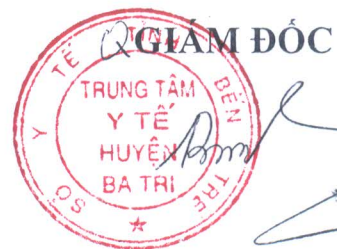 Q.GIÁM ĐỐC
SỞ Y TẾ TỈNH BẾN TRE
TRUNG TÂM
Y TẾ
HUYỆN
BA TRI